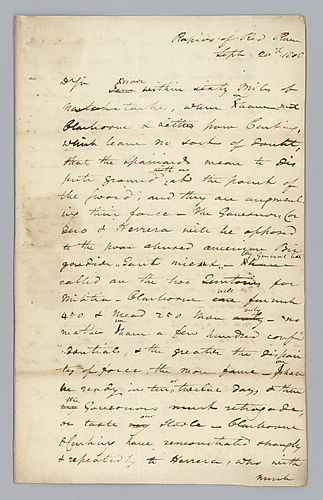 Rapids of Red River
Septr. 20th 1806
D Sir
I now within sixty Miles of
Natchitoches, where I have met
Claiborne & Letters from Cushing,
which leave no sort of doubt,
that the spaniards mean to dis
pute ground with us, at the point of
the sword, and they are augment
ing their force — the Governors Cor
dero & Herrera will be opposed
to the poor abused american Bri
gadier
called on the two Territories for
Militia — Claiborne will furnish
450 & Mead 250 Men only — no
matter I have a few hundred confi
dentials, & the greater the dispari
ty of force the more fame — I shall
be ready in ten or twelve days, & then
the Governors must retrograde,
or taste our Steele — Claiborne
& Cushing have remonstrated strongly
& repeatedly to Herrera, who with
much